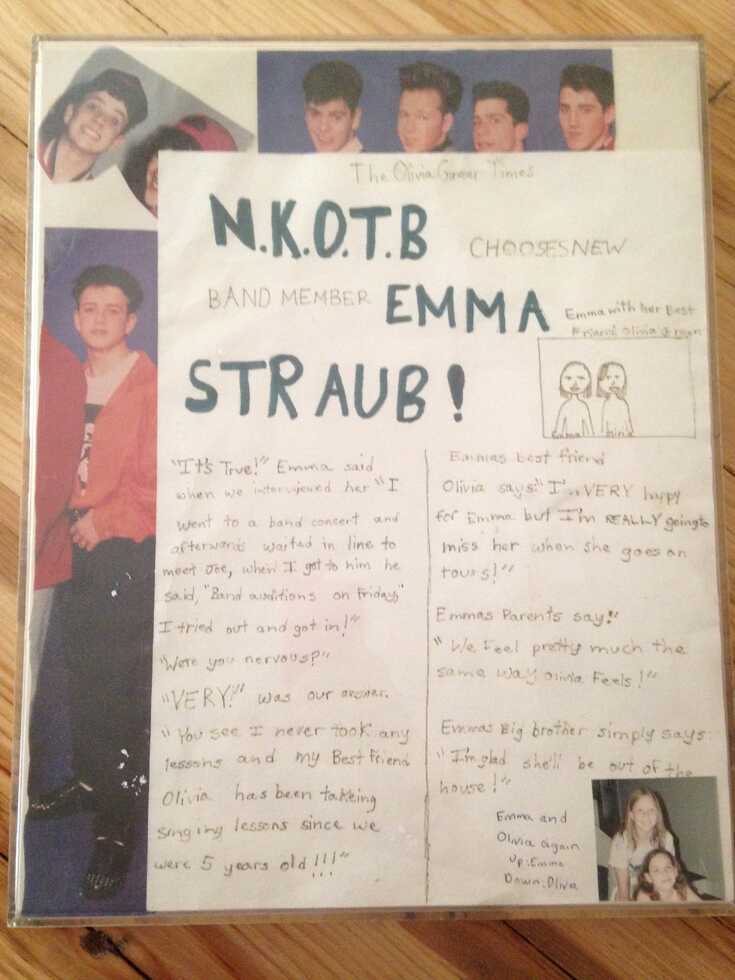 The Olivia Greer Times
N.K.O.T.B CHOOSES NEW
BAND MEMBER EMMA
STRAUB!
Emma with her Best
Friend Olivia Greer
Emma
"It's True!" Emma said
when we interviewed her "I
went to a band concert and
afterwards waited in line to
meet Joe, when I got to him he
said, "Band auditions on Friday,"
I tried out and got in!"
"Were you nervous?"
"VERY!" was our answer.
"You see I never took any
lessons and my Best Friend
Olivia has been takeing
singing lessons since we
were 5 years old!!!"
Emmas best friend
Olivia says:"I'm VERY happy
for Emma but I'm REALLY going to
miss her when she goes on
tours!"
Emmas Parents say:"
"We Feel pretty much the
same way Olivia Feels!"
Emmas Big brother simply says:
"I'm glad she'll be out of the
house!"
Emma and
Olivia again
Up:Emma
Down:Olivia